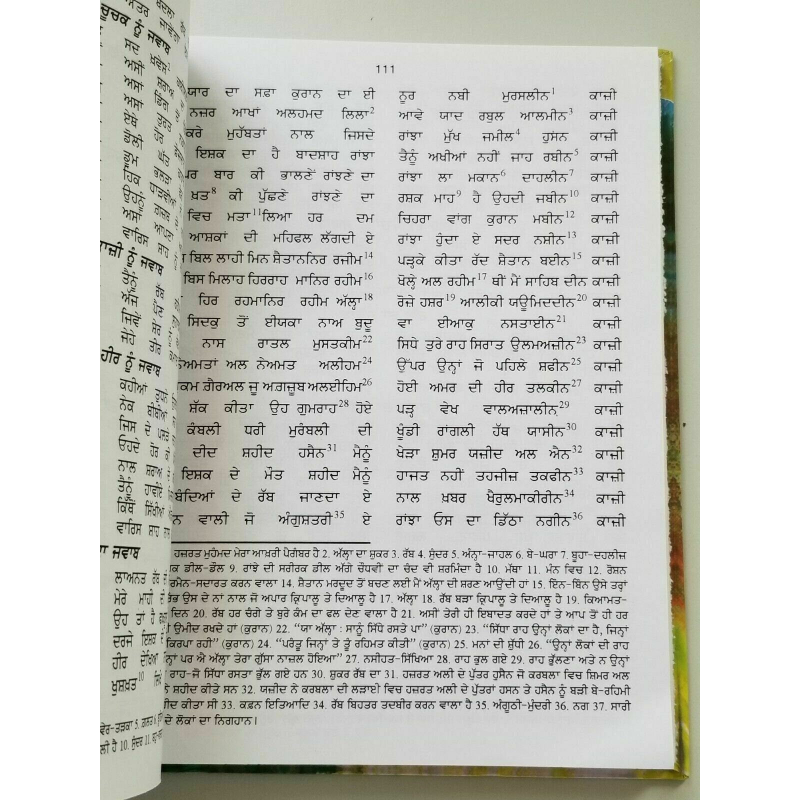 ਚੂਚਕ ਨੂੰ ਜਵਾਬ
ਸਦ
ਅਸੀਂ ਸ਼ਰਾਅ
ਅਸਾਂ
ਏਥੇ ਹੋਰ
ਡੋਲੀ
ਹਿਕ
ਉਹਨੂੰ ਗਜ਼ਬ
ਅਸਾਂ ਆਪਣਾ
ਵਾਰਿਸ ਸ਼ਾਹ
ਨੂੰ ਜਵਾਬ
ਤੈਨੂੰ ਰੱਬ
ਅੱਜ ਪੈਣ
ਜਿਵੇਂ ਸ਼ੇਰ
ਜੇਹੇ ਤੀਰ
ਹੀਰ ਨੂੰ ਜਵਾਬ
ਕਹੀਆਂ
ਨੇਕ ਬੀਬੀਆਂ
ਜਿਸ ਦੇ
ਓਹਦੇ ਹੋਰ
ਨਾਲ ਸ਼ਰਾਅ
ਤੈਨੂੰ ਹਾਵੀਏ
ਕਿੱਥੋਂ ਸਿੱਖੀਆਂ
ਵਾਰਿਸ ਸ਼ਾਹ ਨਾਲ
ਦਾ ਜਵਾਬ
ਲਾਅਨਤ ਰੱਬ ਦੀ
ਮੇਰੇ ਮਾਹੀ ਦੀ
ਉਹ ਤਾਂ ਹੈ
ਦਰਜੇ ਇਸ਼ਕ ਦੇ
ਹੀਰ ਦੇਖਿਆਂ
ਖ਼ੁਸ਼ਖ਼ਤ10
111
ਯਾਰ ਦਾ ਸਫ਼ਾ ਕੁਰਾਨ ਦਾ ਈ ਨੂਰ ਨਬੀ ਮੁਰਸਲੀਨ1 ਕਾਜ਼ੀ
ਨਜ਼ਰ ਆਖਾਂ ਅਲਹਮਦ ਲਿਲਾ2 ਆਵੇ ਯਾਦ ਰਬੁਲ ਆਲਮੀਨ3 ਕਾਜ਼ੀ
ਕਰੇ ਮੁਹੱਬਤਾਂ ਨਾਲ ਜਿਸਦੇ ਰਾਂਝਾ ਮੁੱਖ ਜਮੀਲ4 ਹੁਸਨ ਕਾਜ਼ੀ
ਇਸ਼ਕ ਦਾ ਹੈ ਬਾਦਸ਼ਾਹ ਰਾਂਝਾ ਤੈਨੂੰ ਅਖੀਆਂ ਨਹੀਂ ਜਾਹ ਰਬੀਨ5 ਕਾਜ਼ੀ
ਪਰ ਬਾਰ ਕੀ ਭਾਲਣੇਂ ਰਾਂਝਣੇਂ ਦਾ ਰਾਂਝਾ ਲਾ ਮਕਾਨ6 ਦਾਹਲੀਨ7 ਕਾਜ਼ੀ
ਖ਼ਤ8 ਕੀ ਪੁੱਛਣੇਂ ਰਾਂਝਣੇ ਦਾ ਰਸ਼ਕ ਮਾਹ9 ਹੈ ਉਹਦੀ ਜਬੀਨ10 ਕਾਜ਼ੀ
ਵਿਚ ਮਤਾ11ਲਿਆ ਹਰ ਦਮ ਚਿਹਰਾ ਵਾਂਗ ਕੁਰਾਨ ਮਬੀਨ12 ਕਾਜ਼ੀ
ਆਸ਼ਕਾਂ ਦੀ ਮਹਿਫਲ ਲੱਗਦੀ ਏ ਰਾਂਝਾ ਹੁੰਦਾ ਏ ਸਦਰ ਨਸ਼ੀਨ13 ਕਾਜ਼ੀ
ਬਿਲ ਲਾਹੀ ਮਿਨ ਸ਼ੈਤਾਨਨਿਰ ਰਜੀਮ14 ਪੜ੍ਹਕੇ ਕੀਤਾ ਰੱਦ ਸ਼ੈਤਾਨ ਬਈਨ15 ਕਾਜ਼ੀ
ਬਿਸ ਮਿਲਾਹ ਹਿਰਰਾਹ ਮਾਨਿਰ ਰਹੀਮ16 ਖੋਲ੍ਹੇ ਅਲ ਰਹੀਮ17 ਥੀਂ ਮੈਂ ਸਾਹਿਬ ਦੀਨ ਕਾਜ਼ੀ
ਹਿਰ ਰਹਮਾਨਿਰ ਰਹੀਮ ਅੱਲ੍ਹਾ18 ਰੋਜ਼ੇ ਹਸ਼ਰ19 ਆਲੀਕੀ ਯਊਮਿਦਦੀਨ20 ਕਾਜ਼ੀ
ਸਿਦਕੁ ਤੋਂ ਈਯਕਾ ਨਾਅ ਬੁਦੂ ਵਾ ਈਆਕੁ ਨਸਤਾਈਨ21 ਕਾਜ਼ੀ
ਨਾਸ ਰਾਤਲ ਮੁਸਤਕੀਮ22 ਸਿਧੇ ਤੁਰੇ ਰਾਹ ਸਿਰਾਤ ਉਲਮਅਜ਼ੀਨ23 ਕਾਜ਼ੀ
ਨੇਅਮਤਾਂ ਅਲ ਨੇਅਮਤ ਅਲੀਹਮ24 ਉੱਪਰ ਉਨ੍ਹਾਂ ਜੋ ਪਹਿਲੇ ਸ਼ਫੀਨ25 ਕਾਜ਼ੀ
ਕਮ ਗ਼ੈਰਅਲ ਜੂ ਅਗਜ਼ੂਬ ਅਲਈਹਿਮ26 ਹੋਈ ਅਮਰ ਦੀ ਹੀਰ ਤਲਕੀਨ27 ਕਾਜ਼ੀ
ਸ਼ੱਕ ਕੀਤਾ ਉਹ ਗੁਮਰਾਹ28 ਹੋਏ ਪੜ੍ਹ ਵੇਖ ਵਾਲਅਜ਼ਾਲੀਨ29 ਕਾਜ਼ੀ
ਕੰਬਲੀ ਧਰੀ ਮੁਰੰਬਲੀ ਦੀ ਖੂੰਡੀ ਰਾਂਗਲੀ ਹੱਥ ਯਾਸੀਨ30 ਕਾਜ਼ੀ
ਦੀਦ ਸ਼ਹੀਦ ਹਸੈਨ31 ਮੈਨੂੰ ਖੇੜਾ ਸ਼ੁਮਰ ਯਜ਼ੀਦ ਅਲ ਐਨ32 ਕਾਜ਼ੀ
ਇਸ਼ਕ ਦੇ ਮੌਤ ਸ਼ਹੀਦ ਮੈਨੂੰ ਹਾਜਤ ਨਹੀਂ ਤਹਜੀਜ਼ ਤਕਫੀਨ33 ਕਾਜ਼ੀ
ਬੰਦਿਆਂ ਦੇ ਰੱਬ ਜਾਣਦਾ ਏ ਨਾਲ ਖ਼ਬਰ ਖ਼ੈਰੁਲਮਾਕੀਰੀਨ34 ਕਾਜ਼ੀ
ਨ ਵਾਲੀ ਜੋ ਅੰਗੁਸ਼ਤਰੀ35 ਏ ਰਾਂਝਾ ਓਸ ਦਾ ਡਿੱਠਾ ਨਗੀਨ36 ਕਾਜ਼ੀ
ਹਜ਼ਰਤ ਮੁਹੰਮਦ ਮੇਰਾ ਆਖ਼ਰੀ ਪੈਗੰਬਰ ਹੈ 2. ਅੱਲ੍ਹਾ ਦਾ ਸ਼ੁਕਰ 3. ਰੱਬ 4. ਸੁੰਦਰ 5. ਅੰਨ੍ਹਾ-ਜਾਹਲ 6. ਬੇ-ਘਰਾ 7. ਬੂਹਾ-ਦਹਲੀਜ
ਕ ਡੀਲ-ਡੌਲ 9. ਰਾਂਝੇ ਦੀ ਸਰੀਰਕ ਡੀਲ ਅੱਗੇ ਚੌਧਵੀਂ ਦਾ ਚੰਦ ਵੀ ਸ਼ਰਮਿੰਦਾ ਹੈ 10. ਮੱਥਾ 11. ਮੰਨ ਵਿਚ 12. ਰੋਸ਼ਨ
ਰਮੈਨ-ਸਦਾਰਤ ਕਰਨ ਵਾਲਾ 14. ਸ਼ੈਤਾਨ ਮਰਦੂਦ ਤੋਂ ਬਚਣ ਲਈ ਮੈਂ ਅੱਲ੍ਹਾ ਦੀ ਸ਼ਰਣ ਆਉਂਦੀ ਹਾਂ 15. ਇਨ-ਬਿਨ ਉਸੇ ਤਰ੍ਹਾਂ
ਉਸ ਦੇ ਨਾਂ ਨਾਲ ਜੋ ਅਪਾਰ ਕ੍ਰਿਪਾਲੂ ਤੇ ਦਿਆਲੂ ਹੈ 17. ਅੱਲ੍ਹਾ 18. ਅੱਲ੍ਹਾ ਬੜਾ ਕ੍ਰਿਪਾਲੂ ਤੇ ਦਿਆਲੂ ਹੈ 19. ਕਿਆਮਤ-
ਦਿਨ 20. ਰੱਬ ਹਰ ਚੰਗੇ ਤੇ ਬੁਰੇ ਕੰਮ ਦਾ ਫਲ ਦੇਣ ਵਾਲਾ ਹੈ 21. ਅਸੀਂ ਤੇਰੀ ਹੀ ਇਬਾਦਤ ਕਰਦੇ ਹਾਂ ਤੇ ਆਪ ਤੋਂ ਹੀ ਹਰ
ਉਮੀਦ ਰਖਦੇ ਹਾਂ (ਕੁਰਾਨ) 22. "ਯਾ ਅੱਲ੍ਹਾ : ਸਾਨੂੰ ਸਿੱਧੇ ਰਸਤੇ ਪਾ" (ਕੁਰਾਨ) 23. "ਸਿੱਧਾ ਰਾਹ ਉਨ੍ਹਾਂ ਲੋਕਾਂ ਦਾ ਹੈ, ਜਿਨ੍ਹਾਂ
ਕਿਰਪਾ ਰਹੀ" (ਕੁਰਾਨ) 24. "ਪਰੰਤੂ ਜਿਨ੍ਹਾਂ ਤੇ ਤੂੰ ਰਹਿਮਤ ਕੀਤੀ" (ਕੁਰਾਨ) 25. ਮਨਾਂ ਦੀ ਸ਼ੁੱਧੀ 26. "ਉਨ੍ਹਾਂ ਲੋਕਾਂ ਦੀ ਰਾਹ
ਨ੍ਹਾਂ ਪਰ ਐ ਅੱਲ੍ਹਾ ਤੇਰਾ ਗੁੱਸਾ ਨਾਜ਼ਲ ਹੋਇਆ" 27. ਨਸੀਹਤ-ਸਿੱਖਿਆ 28. ਰਾਹ ਭੁਲ ਗਏ 29. ਰਾਹ ਭੁੱਲਣਾ ਅਤੇ ਨ ਉਨ੍ਹਾਂ
ਰਾਹ-ਜੋ ਸਿੱਧਾ ਰਸਤਾ ਭੁੱਲ ਗਏ ਹਨ 30. ਸ਼ੁਕਰ ਰੱਬ ਦਾ 31. ਹਜ਼ਰਤ ਅਲੀ ਦੇ ਪੁੱਤਰ ਜੋ ਕਰਬਲਾ ਵਿਚ ਸ਼ਿਮਰ ਅਲ
ਸ਼ਹੀਦ ਕੀਤੇ ਸਨ 32. ਯਜ਼ੀਦ ਨੇ ਕਰਬਲਾ ਦੀ ਲੜਾਈ ਵਿਚ ਹਜ਼ਰਤ ਅਲੀ ਦੇ ਪੁੱਤਰਾਂ ਹਸਨ ਤੇ ਹਸੈਨ ਨੂੰ ਬੜੀ ਬੇ-ਰਹਿਮੀ
ਕੀਤਾ ਸੀ 33. ਕਫ਼ਨ ਇਤਿਆਦਿ 34. ਰੱਬ ਬਿਹਤਰ ਤਦਬੀਰ ਕਰਨ ਵਾਲਾ ਹੈ 35. ਅੰਗੂਠੀ-ਮੁੰਦਰੀ 36. ਨਗ 37. ਸਾਰੀ
ਦੇ ਲੋਕਾਂ ਦਾ ਨਿਗਾਹਾਨ।